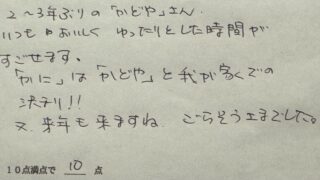 2～3年ぶりの「かどや」さん.
いつも おいしく ゆったりとした時間が
すごせます。
「かに」は「かどや」と我が家での
決まり!!
又、来年も来ますね ごちそうさまでした。
10点満点で 10 点